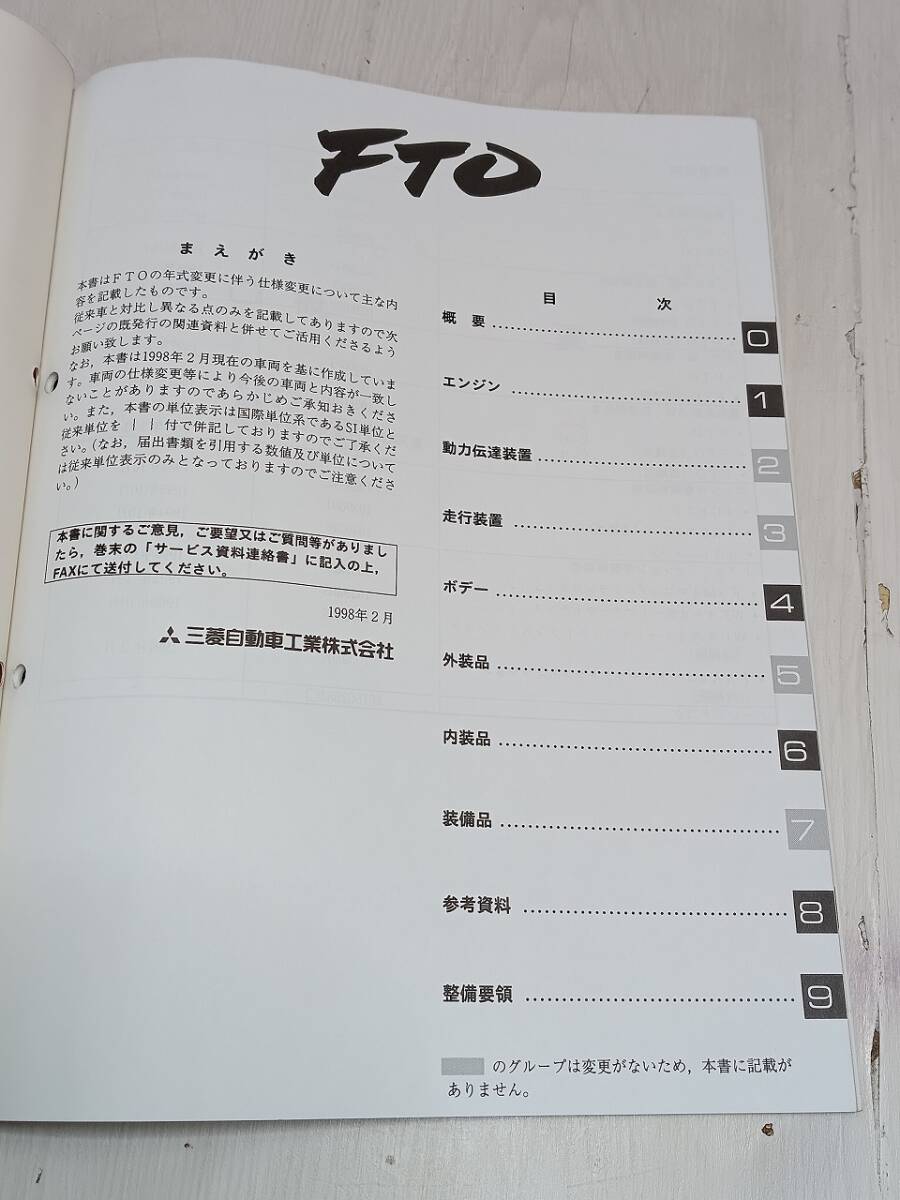 FTO
まえがき
本書はFTOの年式変更に伴う仕様変更について主な内
容を記載したものです。
従来車と対比し異なる点のみを記載してありますので次
ページの既発行の関連資料と併せてご活用くださるよう
お願い致します。
なお，本書は1998年2月現在の車両を基に作成していま
す。車両の仕様変更等により今後の車両と内容が一致し
ないことがありますのであらかじめご承知おきくださ
い。また，本書の単位表示は国際単位系であるSI単位と
従来単位を｜｜付で併記しておりますのでご了承くだ
さい。（なお，届出書類を引用する数値及び単位について
は従来単位表示のみとなっておりますのでご注意くださ
い。）
本書に関するご意見，ご要望又はご質問等がありまし
たら，巻末の「サービス資料連絡書」に記入の上，
FAXにて送付してください。
1998年2月
三菱自動車工業株式会社
目 次
概 要 0
エンジン 1
動力伝達装置 2
走行装置 3
ボデー 4
外装品 5
内装品 6
装備品 7
参考資料 8
整備要領 9
のグループは変更がないため，本書に記載が
ありません。